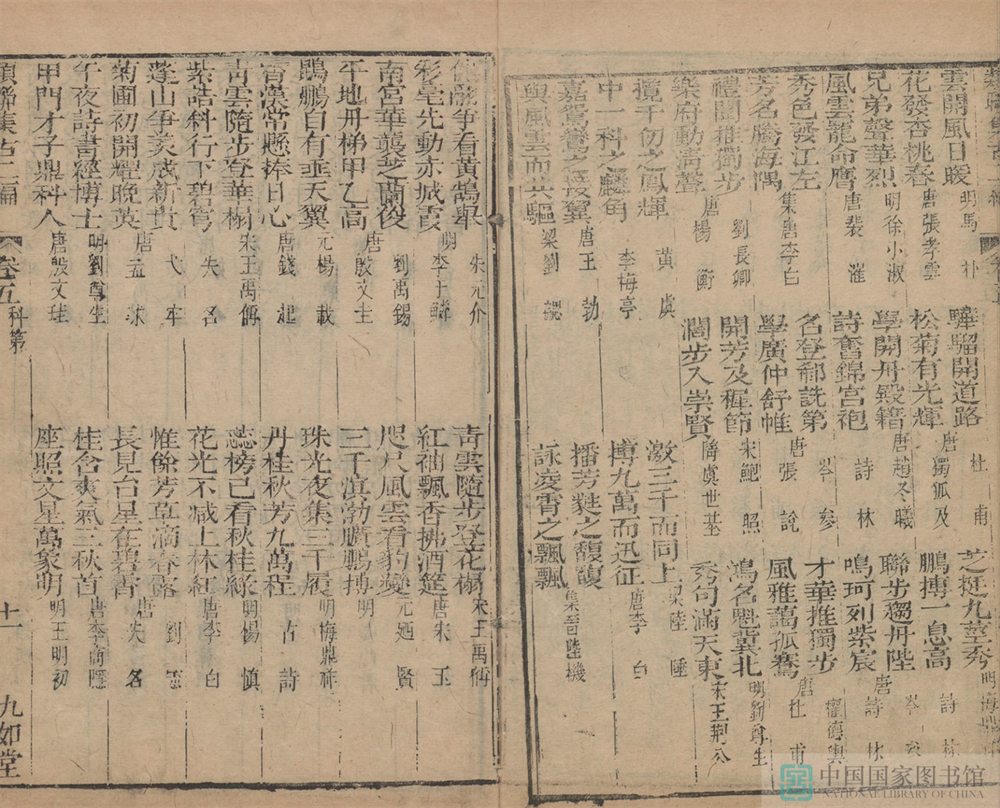 雲開風日暖 明馬朴 驊騮開道路 杜甫 芝挺九莖秀
花發杏桃春 唐張孝雲 松菊有光輝 唐獨孤及 鵬摶一息高 詩林
兄弟聲華烈 明徐小淑 學開丹殿籍 唐趙冬曦 聯步遶丹陛 岑參
風雲龍命膺 唐裴漼 詩奮錦宮袍 詩林 鳴珂列紫宸 唐詩林
秀色發江左 集唐李白 名登郤詵第 岑參 才華推獨步 權德輿
芳名騰海隅 劉長卿 學廣仲舒帷 唐張說 風雅藹孤騫 唐杜甫
禮闈推獨步 唐楊衡 開芳及稚節 宋鮑照 鴻名魁冀北 明劉尊生
樂府動清聲 闊步入崇賢 隋虞世基 秀句滿天東 宋王荊公
攬千仞之鳳輝 黃虞 激三千而同上 梁陸倕
中一科之麟角 李梅亭 摶九萬而迅征 唐李白
嘉鴛鷺之接翼 唐王勃 播芳蕤之馥馥
與風雲而並驅 梁劉勰 詠凌霄之飄飄 集晉陸機
爭看黃鵠舉 朱元介 青雲隨步登花榻 宋王禹偁
彩毫先動赤城霞 明李于鱗 紅袖飄香拂酒筵 唐朱玉
南宮華襲芝蘭俊 劉禹錫 咫尺風雲看豹變 元廼賢
平地丹梯甲乙高 唐殷文圭 三千滇渤贐鵬摶 明
鵾鵬自有垂天翼 元楊載 珠光夜集三千履 明梅鼎祚
霄漢常懸捧日心 唐錢起 丹桂秋芳九萬程 古詩
青雲隨步登華榻 宋王禹偁 蕊榜已看秋桂綠 明楊慎
紫誥科行下碧霄 失名 花光不減上林紅 唐李白
蓬山爭羨成新貴 弋牢 惟餘芳草滴春露 劉
菊圃初開耀晚英 唐孟球 長見台星在碧霄 唐失名
午夜詩書經博士 明劉尊生 桂含爽氣三秋首 唐李商隱
甲門才子鼎科人 唐殷文珪 座照文星萬象明 明王明初
類聯集古二編 卷五 科第 十一 九如堂
中国国家图书馆
NATIONAL LIBRARY OF CHINA